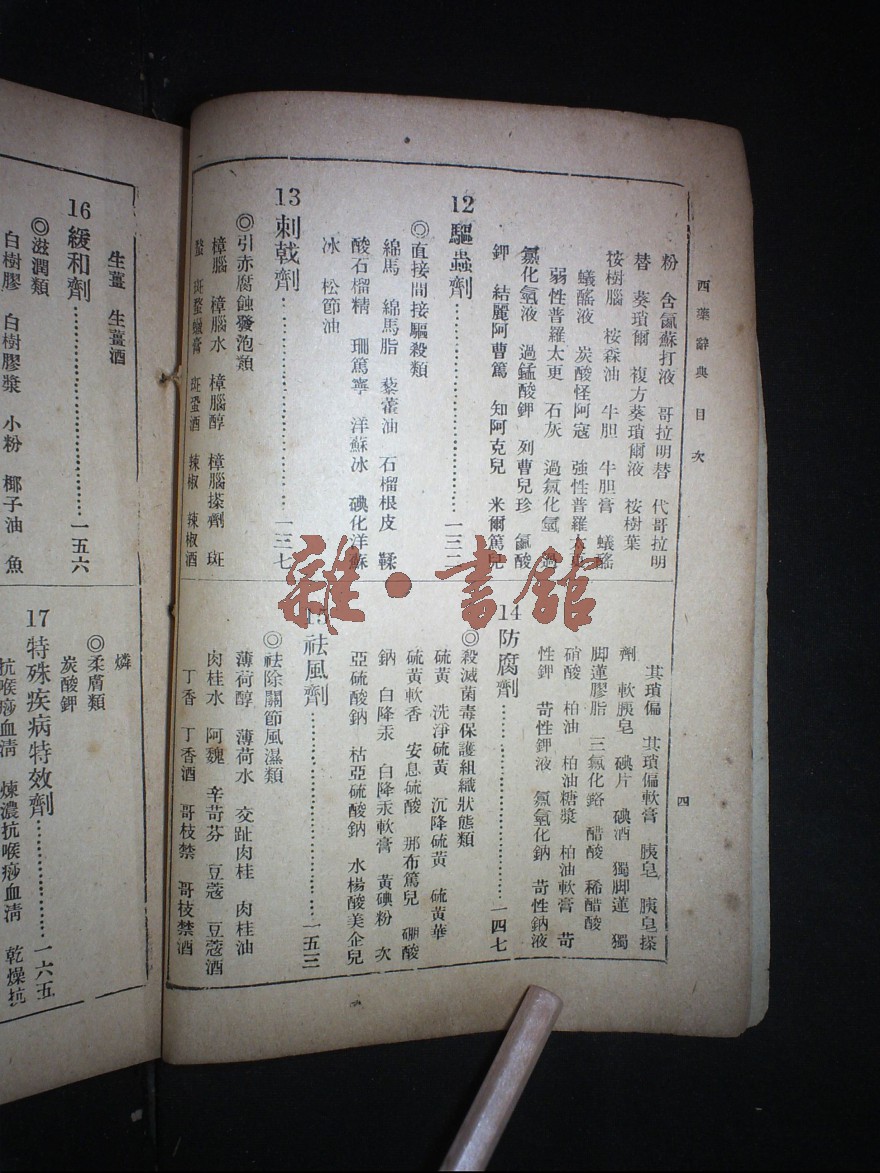 西藥辭典 目次
四
粉 含氯蘇打液 哥拉明替 代哥拉明
替 葵瑣爾 複方葵瑣爾液 桉樹葉
桉樹腦 桉森油 牛胆 牛胆膏 蟻醛
蟻醛液 炭酸怪阿寇 強性普羅太更
弱性普羅太更 石灰 過氧化氫 過
氯化氫液 過錳酸鉀 列曹兒珍 氯酸
鉀 結麗阿曹篤 知阿克兒 米爾篤兒
12 驅蟲劑…………一三二
◎直接間接驅殺類
綿馬 綿馬脂 藜藿油 石榴根皮 鞣
酸石榴精 珊篤寧 洋蘇冰 碘化洋蘇
冰 松節油
13 刺戟劑…………一三七
◎引赤腐蝕發泡類
樟腦 樟腦水 樟腦醇 樟腦搽劑 斑
蝥 斑蝥蠟膏 斑蝥酒 辣椒 辣椒酒
其瑣偏 其瑣偏軟膏 胰皂 胰皂搽
劑 軟胰皂 碘片 碘酒 獨脚蓮 獨
脚蓮膠脂 三氯化鉻 醋酸 稀醋酸
硝酸 柏油 柏油糖漿 柏油軟膏 苛
性鉀 苛性鉀液 氫氧化鈉 苛性鈉液
14 防腐劑…………一四七
◎殺滅菌毒保護組織狀態類
硫黃 洗淨硫黃 沉降硫黃 硫黃華
硫黃軟香 安息硫酸 那布篤兒 硼酸
鈉 白降汞 白降汞軟膏 黃碘粉 次
亞硫酸鈉 枯亞硫酸鈉 水楊酸美企兒
15 祛風劑…………一五三
◎祛除關節風濕類
薄荷醇 薄荷水 交趾肉桂 肉桂油
肉桂水 阿魏 辛苛芬 豆蔻 豆蔻酒
丁香 丁香酒 哥枝禁 哥枝禁酒
生薑 生薑酒
16 緩和劑…………一五六
◎滋潤類
白樹膠 白樹膠漿 小粉 椰子油 魚
燐
◎柔膚類
炭酸鉀
17 特殊疾病特效劑…………一六五
抗喉痧血清 煉濃抗喉痧血清 乾燥抗
雜·書館